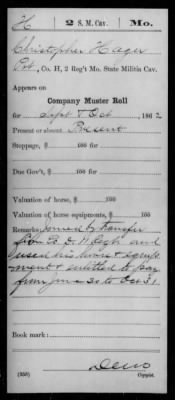 H 2 S. M. Cav. Mo.
Christopher Hager
Pvt, Co. H, 2 Reg't Mo. State Militia Cav.
Appears on
Company Muster Roll
for Sept & Oct, 186
Present or absent Present
Stoppage, $ 100 for
Due Gov't, $ 100 for
Valuation of horse, $ 100
Valuation of horse equipments, $ 100
Remarks: Joined by transfer
from Co. D. and
used his horse & equip
ment & entitled to pay
from June 30 to Oct 31
Book mark:
(358) Copyist.